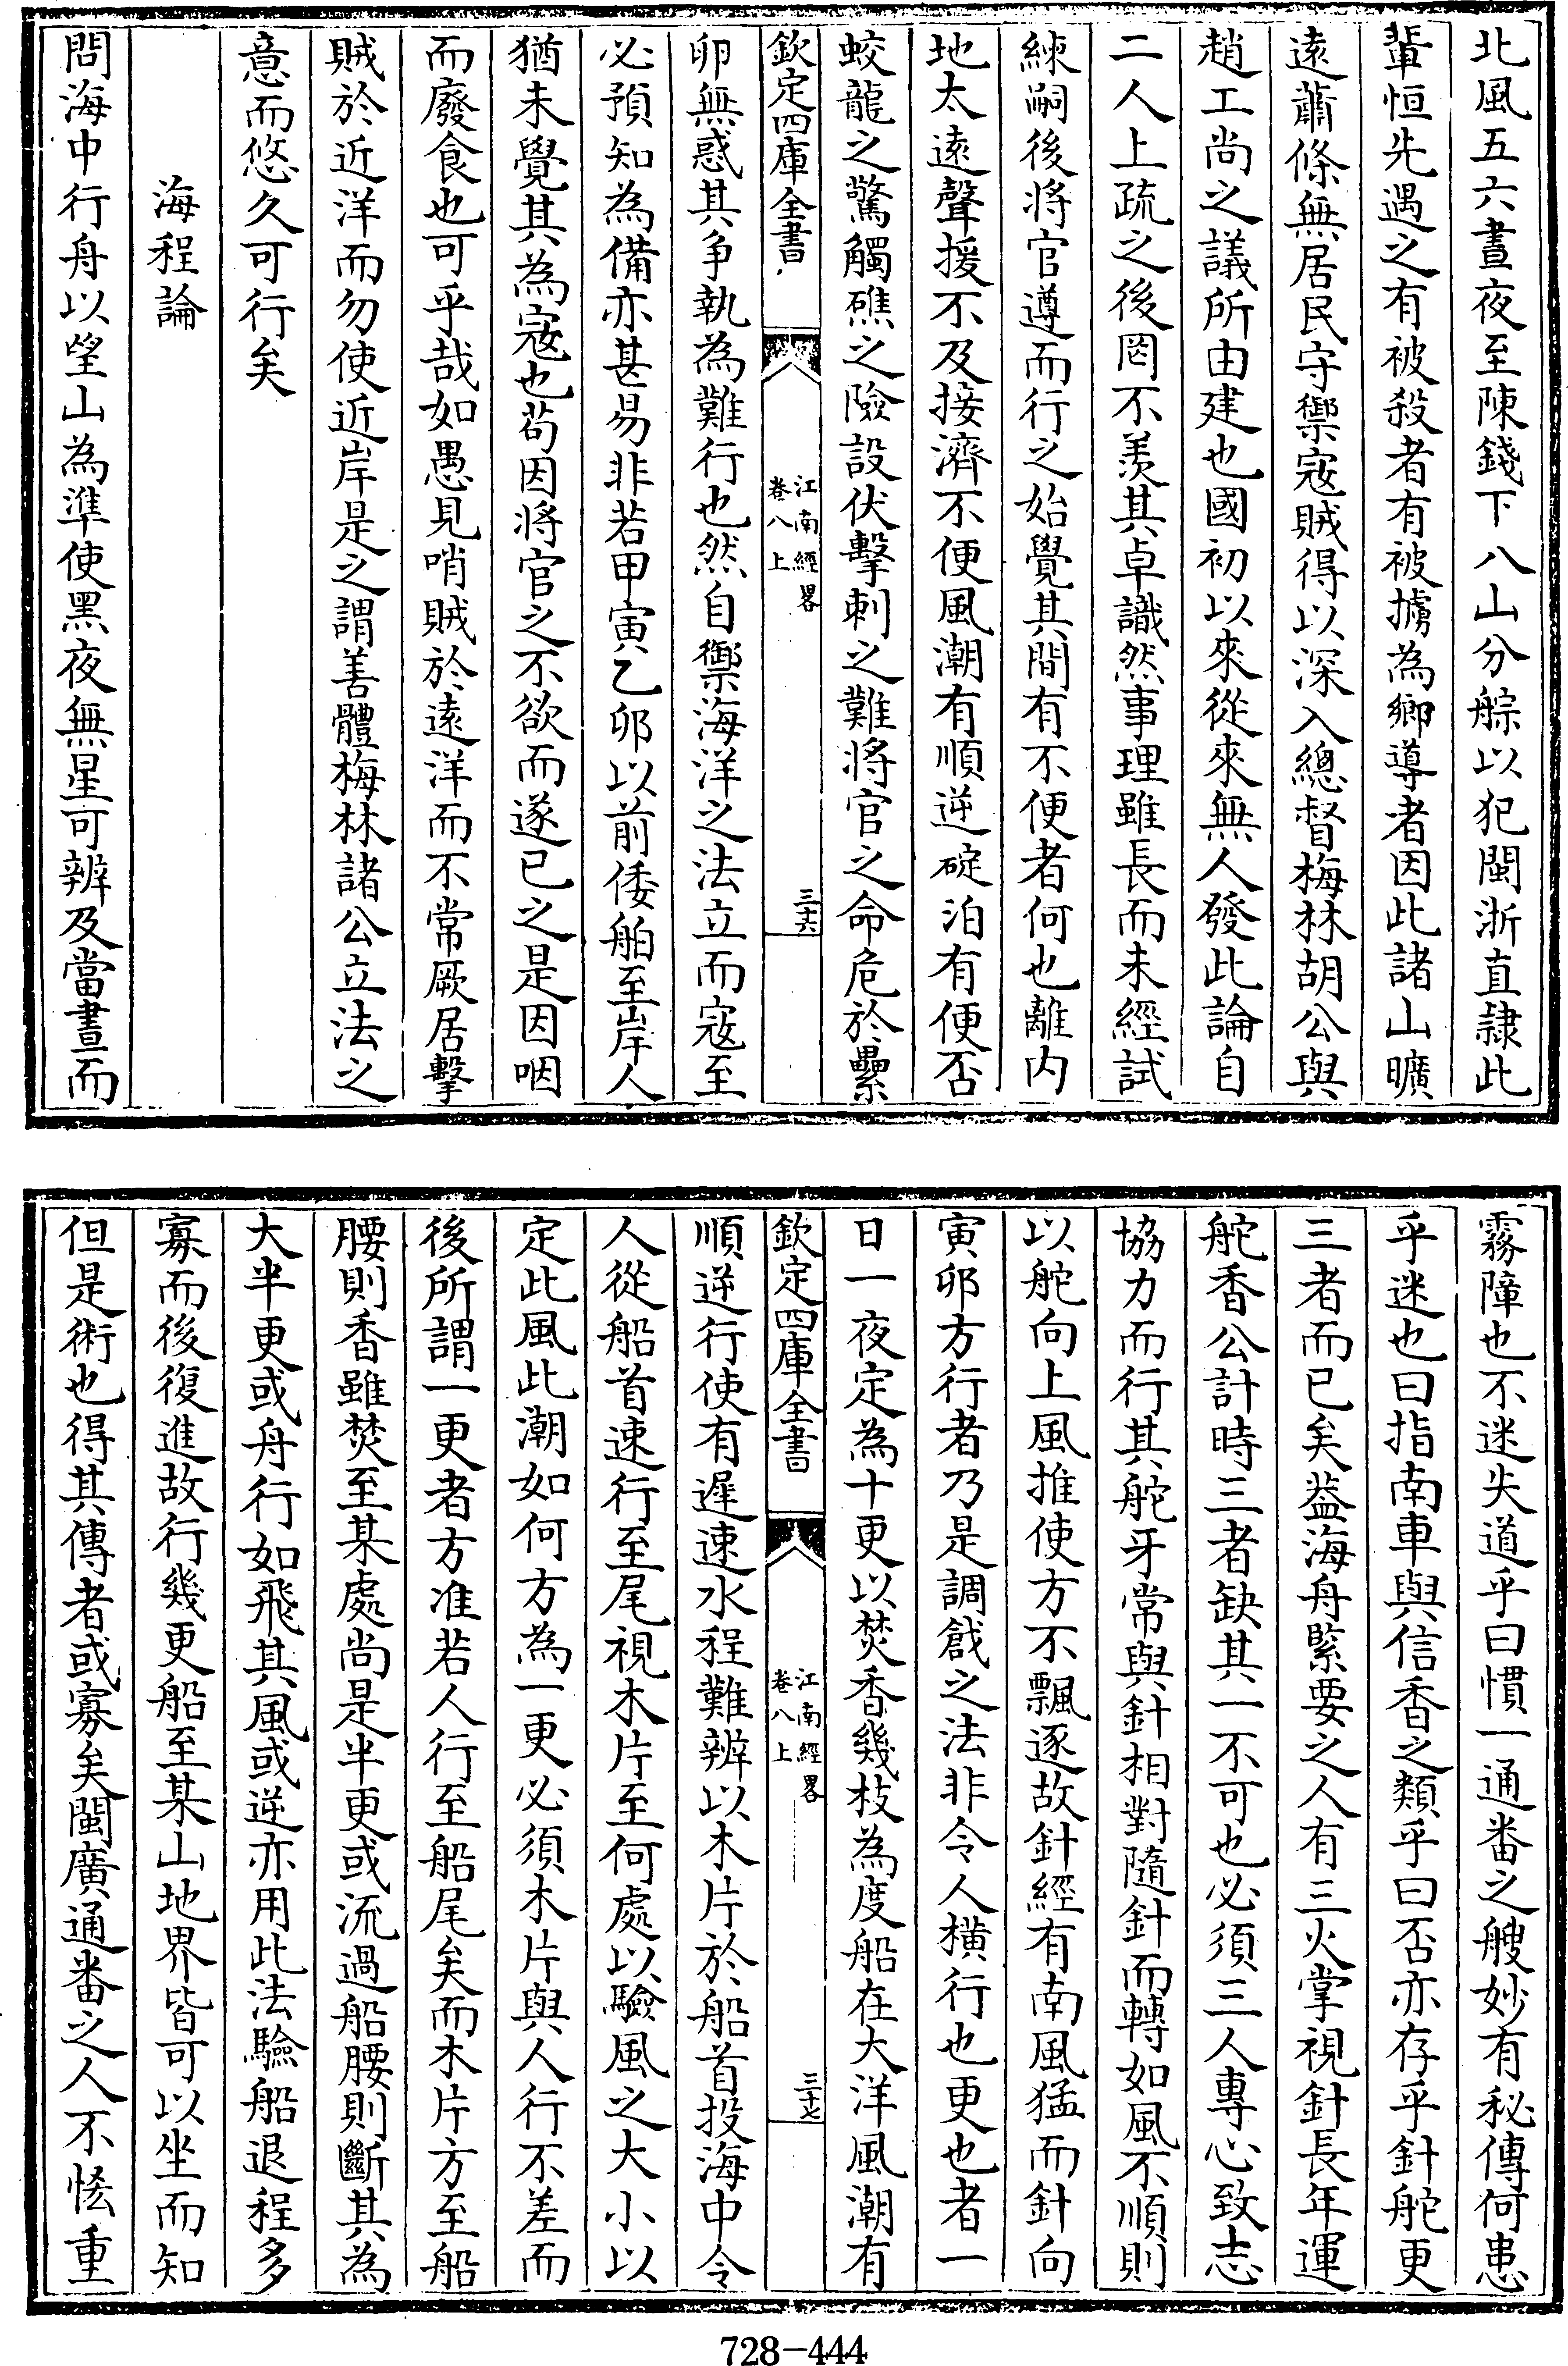 北風五六晝夜至陳錢下八山分䑸以犯閩浙直隷此
輩恒先遇之有被殺者有被擄為鄉導者因此諸山曠
逺蕭條無居民守禦寇賊得以深入總督梅林胡公與
趙工尚之議所由建也國初以來從來無人發此論自
二人上疏之後罔不羨其卓識然事理雖長而未經試
練嗣後將官遵而行之始覺其間有不便者何也離内
地太逺聲援不及接濟不便風潮有順逆碇泊有便否
蛟龍之驚觸礁之險設伏擊刺之難將官之命危於纍
欽定四庫全書
江南經畧
卷八上
三十六
卵無惑其爭執為難行也然自禦海洋之法立而寇至
必預知為備亦甚易非若甲寅乙卯以前倭舶至岸人
猶未覺其為寇也茍因將官之不欲而遂已之是因咽
而廢食也可乎哉如愚見哨賊於逺洋而不常厥居擊
賊於近洋而勿使近岸是之謂善體梅林諸公立法之
意而悠久可行矣
海程論
問海中行舟以望山為準使黑夜無星可辨及當晝而
霧障也不迷失道乎曰慣一通番之艘妙有秘傳何患
乎迷也曰指南車與信香之類乎曰否亦存乎針舵更
三者而已矣葢海舟緊要之人有三火掌視針長年運
舵香公計時三者缺其一不可也必須三人專心致志
協力而行其舵牙常與針相對隨針而轉如風不順則
以舵向上風推使方不飄逐故針經有南風猛而針向
寅卯方行者乃是調戧之法非令人橫行也更也者一
日一夜定為十更以焚香幾枝為度船在大洋風潮有
欽定四庫全書
江南經畧
卷八上
三十七
順逆行使有遲速水程難辨以木片於船首投海中令
人從船首速行至尾視木片至何處以驗風之大小以
定此風此潮如何方為一更必須木片與人行不差而
後所謂一更者方准若人行至船尾矣而木片方至船
腰則香雖焚至某處尚是半更或流過船腰則斷其為
大半更或舟行如飛其風或逆亦用此法驗船退程多
寡而後復進故行幾更船至某山地界皆可以坐而知
但是術也得其傳者或寡矣閩廣通番之人不恡重
728-444